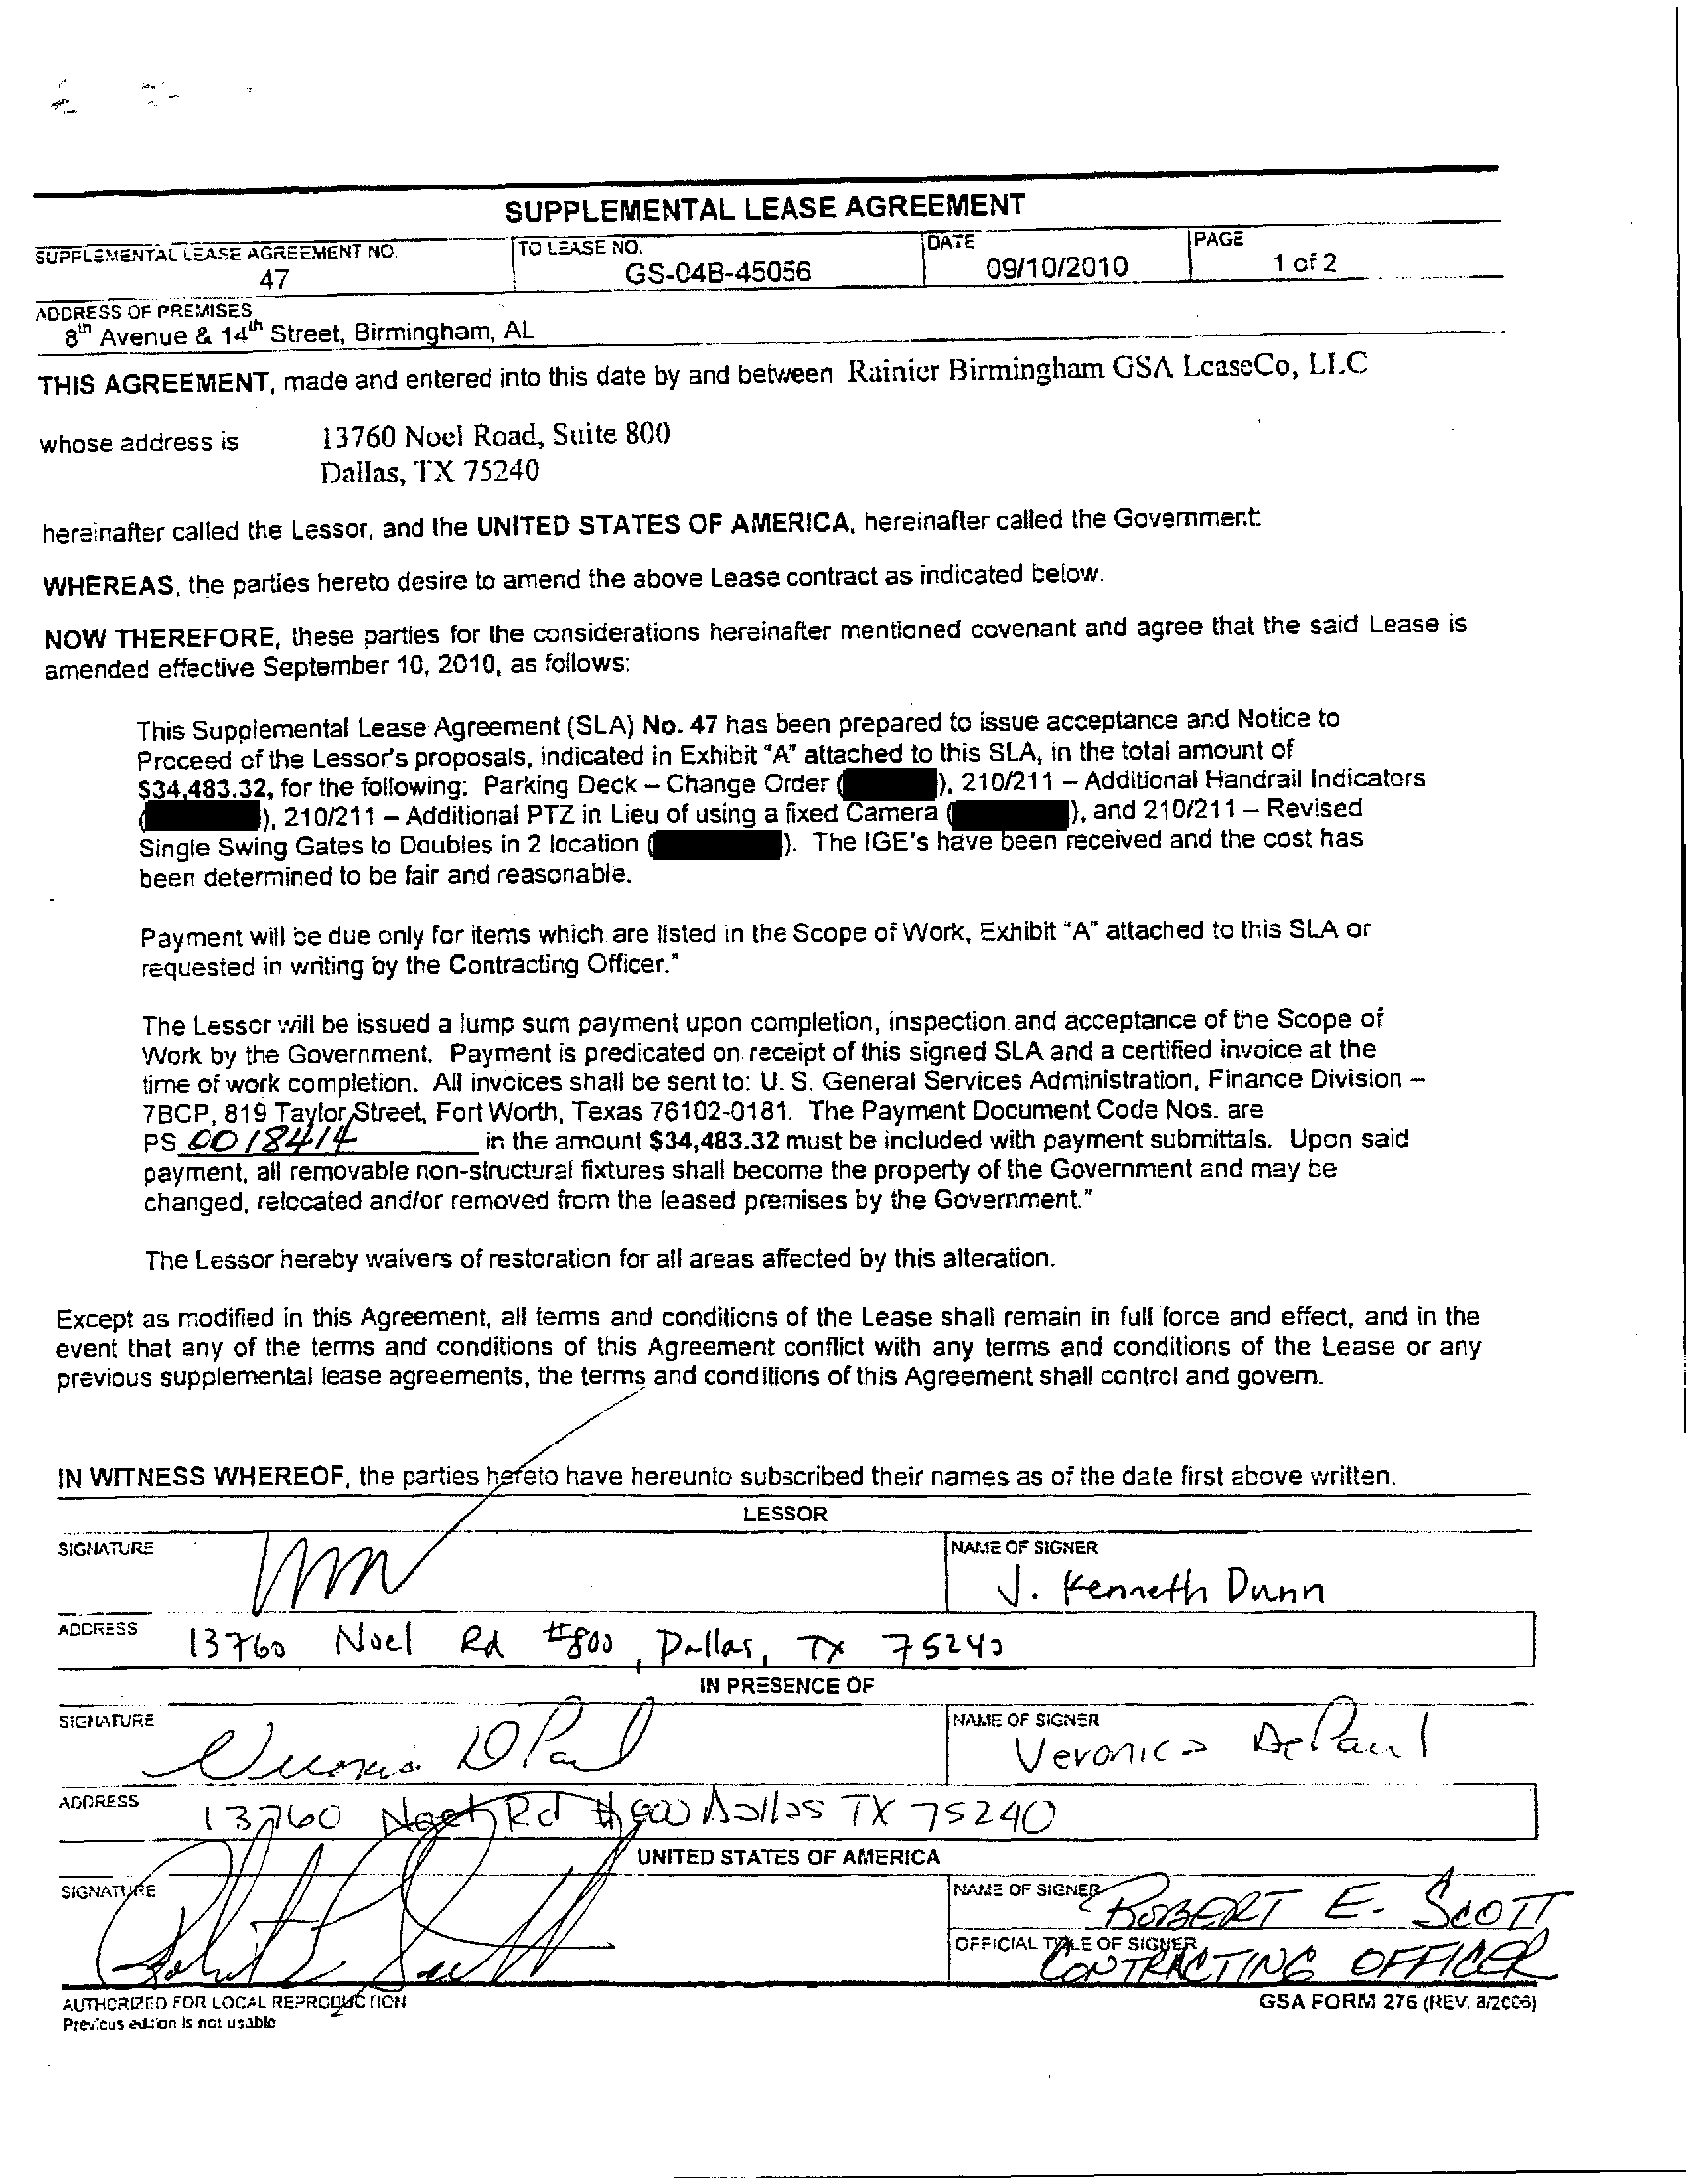 SUPPLEMENTAL LEASE AGREEMENT
SUPPLEMENTAL LEASE AGREEMENT NO. TO LEASE NO. DATE PAGE
47 GS-04B-45056 09/10/2010 1 of 2
ADDRESS OF PREMISES
8th Avenue & 14th Street, Birmingham, AL
THIS AGREEMENT, made and entered into this date by and between Rainier Birmingham GSA LeaseCo, LLC
whose address is 13760 Noel Road, Suite 800
Dallas, TX 75240
hereinafter called the Lessor, and the UNITED STATES OF AMERICA, hereinafter called the Government:
WHEREAS, the parties hereto desire to amend the above Lease contract as indicated below.
NOW THEREFORE, these parties for the considerations hereinafter mentioned covenant and agree that the said Lease is
amended effective September 10, 2010, as follows:
This Supplemental Lease Agreement (SLA) No. 47 has been prepared to issue acceptance and Notice to
Proceed of the Lessor's proposals, indicated in Exhibit "A" attached to this SLA, in the total amount of
$34,483.32, for the following: Parking Deck – Change Order ( ), 210/211 – Additional Handrail Indicators
( ), 210/211 – Additional PTZ in Lieu of using a fixed Camera ( ), and 210/211 – Revised
Single Swing Gates to Doubles in 2 location ( ). The IGE's have been received and the cost has
been determined to be fair and reasonable.
Payment will be due only for items which are listed in the Scope of Work, Exhibit "A" attached to this SLA or
requested in writing by the Contracting Officer."
The Lessor will be issued a lump sum payment upon completion, inspection and acceptance of the Scope of
Work by the Government. Payment is predicated on receipt of this signed SLA and a certified invoice at the
time of work completion. All invoices shall be sent to: U. S. General Services Administration, Finance Division –
7BCP, 819 Taylor Street, Fort Worth, Texas 76102-0181. The Payment Document Code Nos. are
PS 0018414 in the amount $34,483.32 must be included with payment submittals. Upon said
payment, all removable non-structural fixtures shall become the property of the Government and may be
changed, relocated and/or removed from the leased premises by the Government."
The Lessor hereby waivers of restoration for all areas affected by this alteration.
Except as modified in this Agreement, all terms and conditions of the Lease shall remain in full force and effect, and in the
event that any of the terms and conditions of this Agreement conflict with any terms and conditions of the Lease or any
previous supplemental lease agreements, the terms and conditions of this Agreement shall control and govern.
IN WITNESS WHEREOF, the parties hereto have hereunto subscribed their names as of the date first above written.
LESSOR
SIGNATURE NAME OF SIGNER
J. Kenneth Dunn
ADDRESS 13760 Noel Rd #800, Dallas, TX 75240
IN PRESENCE OF
SIGNATURE NAME OF SIGNER
Veronica DePaul
ADDRESS 13760 Noel Rd #800 Dallas TX 75240
UNITED STATES OF AMERICA
SIGNATURE NAME OF SIGNER ROBERT E. SCOTT
OFFICIAL TITLE OF SIGNER CONTRACTING OFFICER
AUTHORIZED FOR LOCAL REPRODUCTION GSA FORM 276 (REV. 8/2006)
Previous edition is not usable